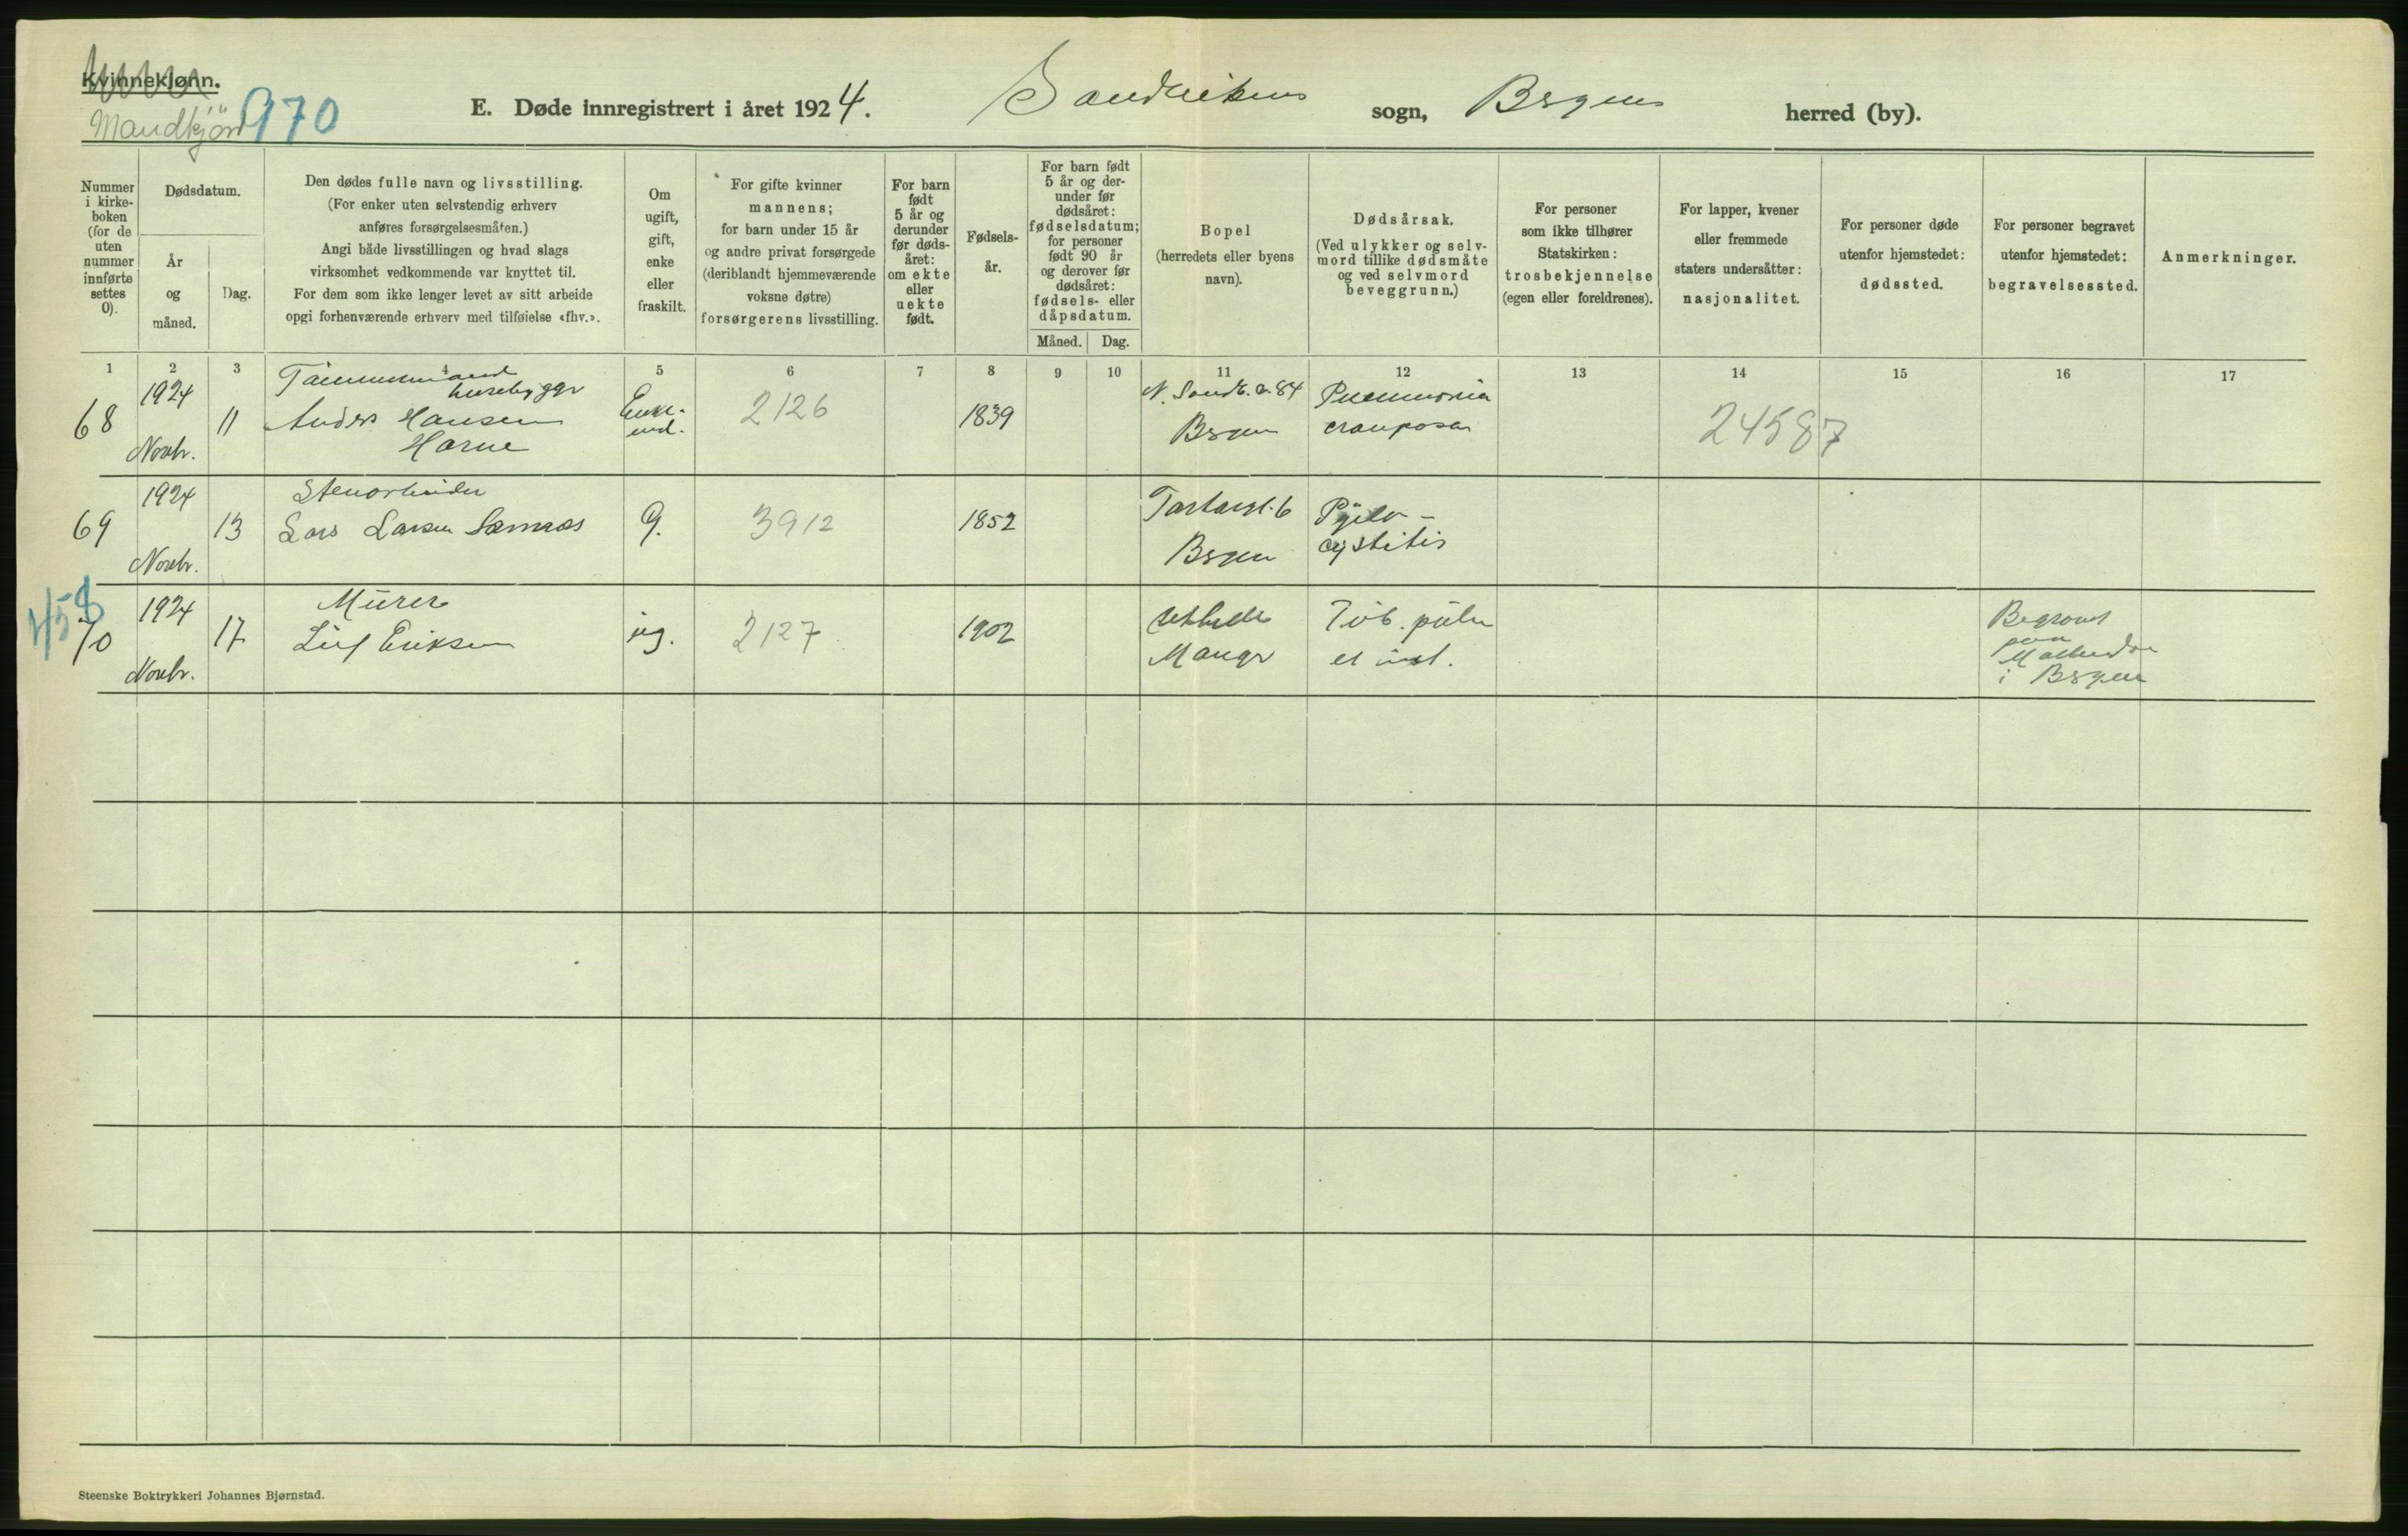 Kvinnekjønn.
Mandkjøn
970
E. Døde innregistrert i året 1924.
Sandvikens sogn, Bergens herred (by).
Nummer i kirke-boken (for de uten nummer innførte settes 0).
Dødsdatum.
År og måned.
Dag.
Den dødes fulle navn og livsstilling.
(For enker uten selvstendig erhverv
anføres forsørgelsesmåten.)
Angi både livsstillingen og hvad slags
virksomhet vedkommende var knyttet til.
For dem som ikke lenger levet av sitt arbeide
opgi forhenværende erhverv med tilføielse «fhv.».
Om
ugift,
gift,
enke
eller
fraskilt.
For gifte kvinner
mannens;
for barn under 15 år
og andre privat forsørgede
(deriblandt hjemmeværende
voksne døtre)
forsørgerens livsstilling.
For barn
født
5 år og
derunder
før døds-
året:
om ekte
eller
uekte
født.
Fødsels-
år.
For barn født
5 år og der-
under før
dødsåret:
fødselsdatum;
for personer
født 90 år
og derover før
dødsåret:
fødsels- eller
dåpsdatum.
Måned. Dag.
Bopel
(herredets eller byens
navn).
Dødsårsak.
(Ved ulykker og selv-
mord tillike dødsmåte
og ved selvmord
beveggrunn.)
For personer
som ikke tilhører
Statskirken:
trosbekjennelse
(egen eller foreldrenes).
For lapper, kvener
eller fremmede
staters undersåtter:
nasjonalitet.
For personer døde
utenfor hjemstedet:
dødssted.
For personer begravet
utenfor hjemstedet:
begravelsessted.
Anmerkninger.
1 2 3 4 5 6 7 8 9 10 11 12 13 14 15 16 17
68
1924
Novbr.
11
Tømmermand
husebygger
Anders Hansen
Horne
Enke-
md.
2126
1839
N. Sandv. v. 84
Bergen
Pneumonia
crouposa
24587
69
1924
Novbr.
13
Stenarbeider
Lars Larsen
g.
3912
1852
6
Bergen
Pyelo-
cystitis
458
70
1924
Novbr.
17
Murer
Leif Eriksen
ug.
2127
1902
Manger
Tub. pulm
et int.
Begravet
paa
Møllendal
i Bergen
Steenske Boktrykkeri Johannes Bjørnstad.